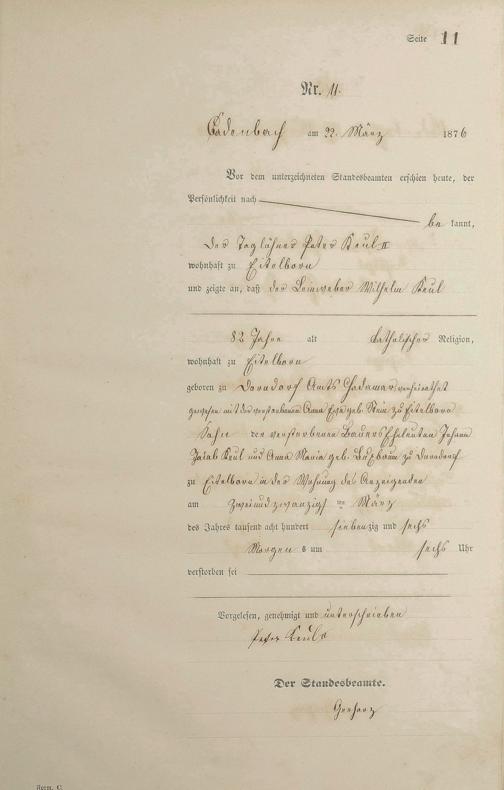 Seite 11
Nr. 11.
Cadenbach am 22. März 1876
Vor dem unterzeichneten Standesbeamten erschien heute, der
Persönlichkeit nach
be kannt,
der Taglöhner Peter Keul II
wohnhaft zu Eitelborn
und zeigte an, daß der Leinweber Wilhelm Keul
82 Jahre alt katholischer Religion,
wohnhaft zu Eitelborn
geboren zu Dorndorf Amts Hadamar verheirathet
gewesen mit der verstorbenen Anna Eva geb. Stein zu Eitelborn
Sohn der verstorbenen Bauers Eheleuten Johann
Jakob Keul und Anna Maria geb. zu Dorndorf
zu Eitelborn in der Wohnung des Anzeigenden
am zweiundzwanzigst en März
des Jahres tausend acht hundert siebenzig und sechs
Morgen s um sechs Uhr
verstorben sei
Vorgelesen, genehmigt und unterschrieben
Peter Keul
Der Standesbeamte.
Gerharz
Form. C.